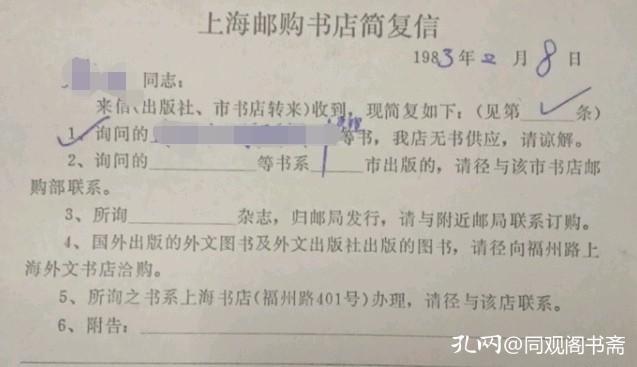 上海邮购书店简复信
1983年 月8日
同志:
来信(出版社、市书店转来)收到,现简复如下:(见第____条)
1、询问的 等书,我店无书供应,请谅解。
2、询问的____等书系____市出版的,请径与该市书店邮
购部联系。
3、所询____杂志,归邮局发行,请与附近邮局联系订购。
4、国外出版的外文图书及外文出版社出版的图书,请径向福州路上
海外文书店洽购。
5、所询之书系上海书店(福州路401号)办理,请径与该店联系。
6、附告:____
孔网@同观阁书斋